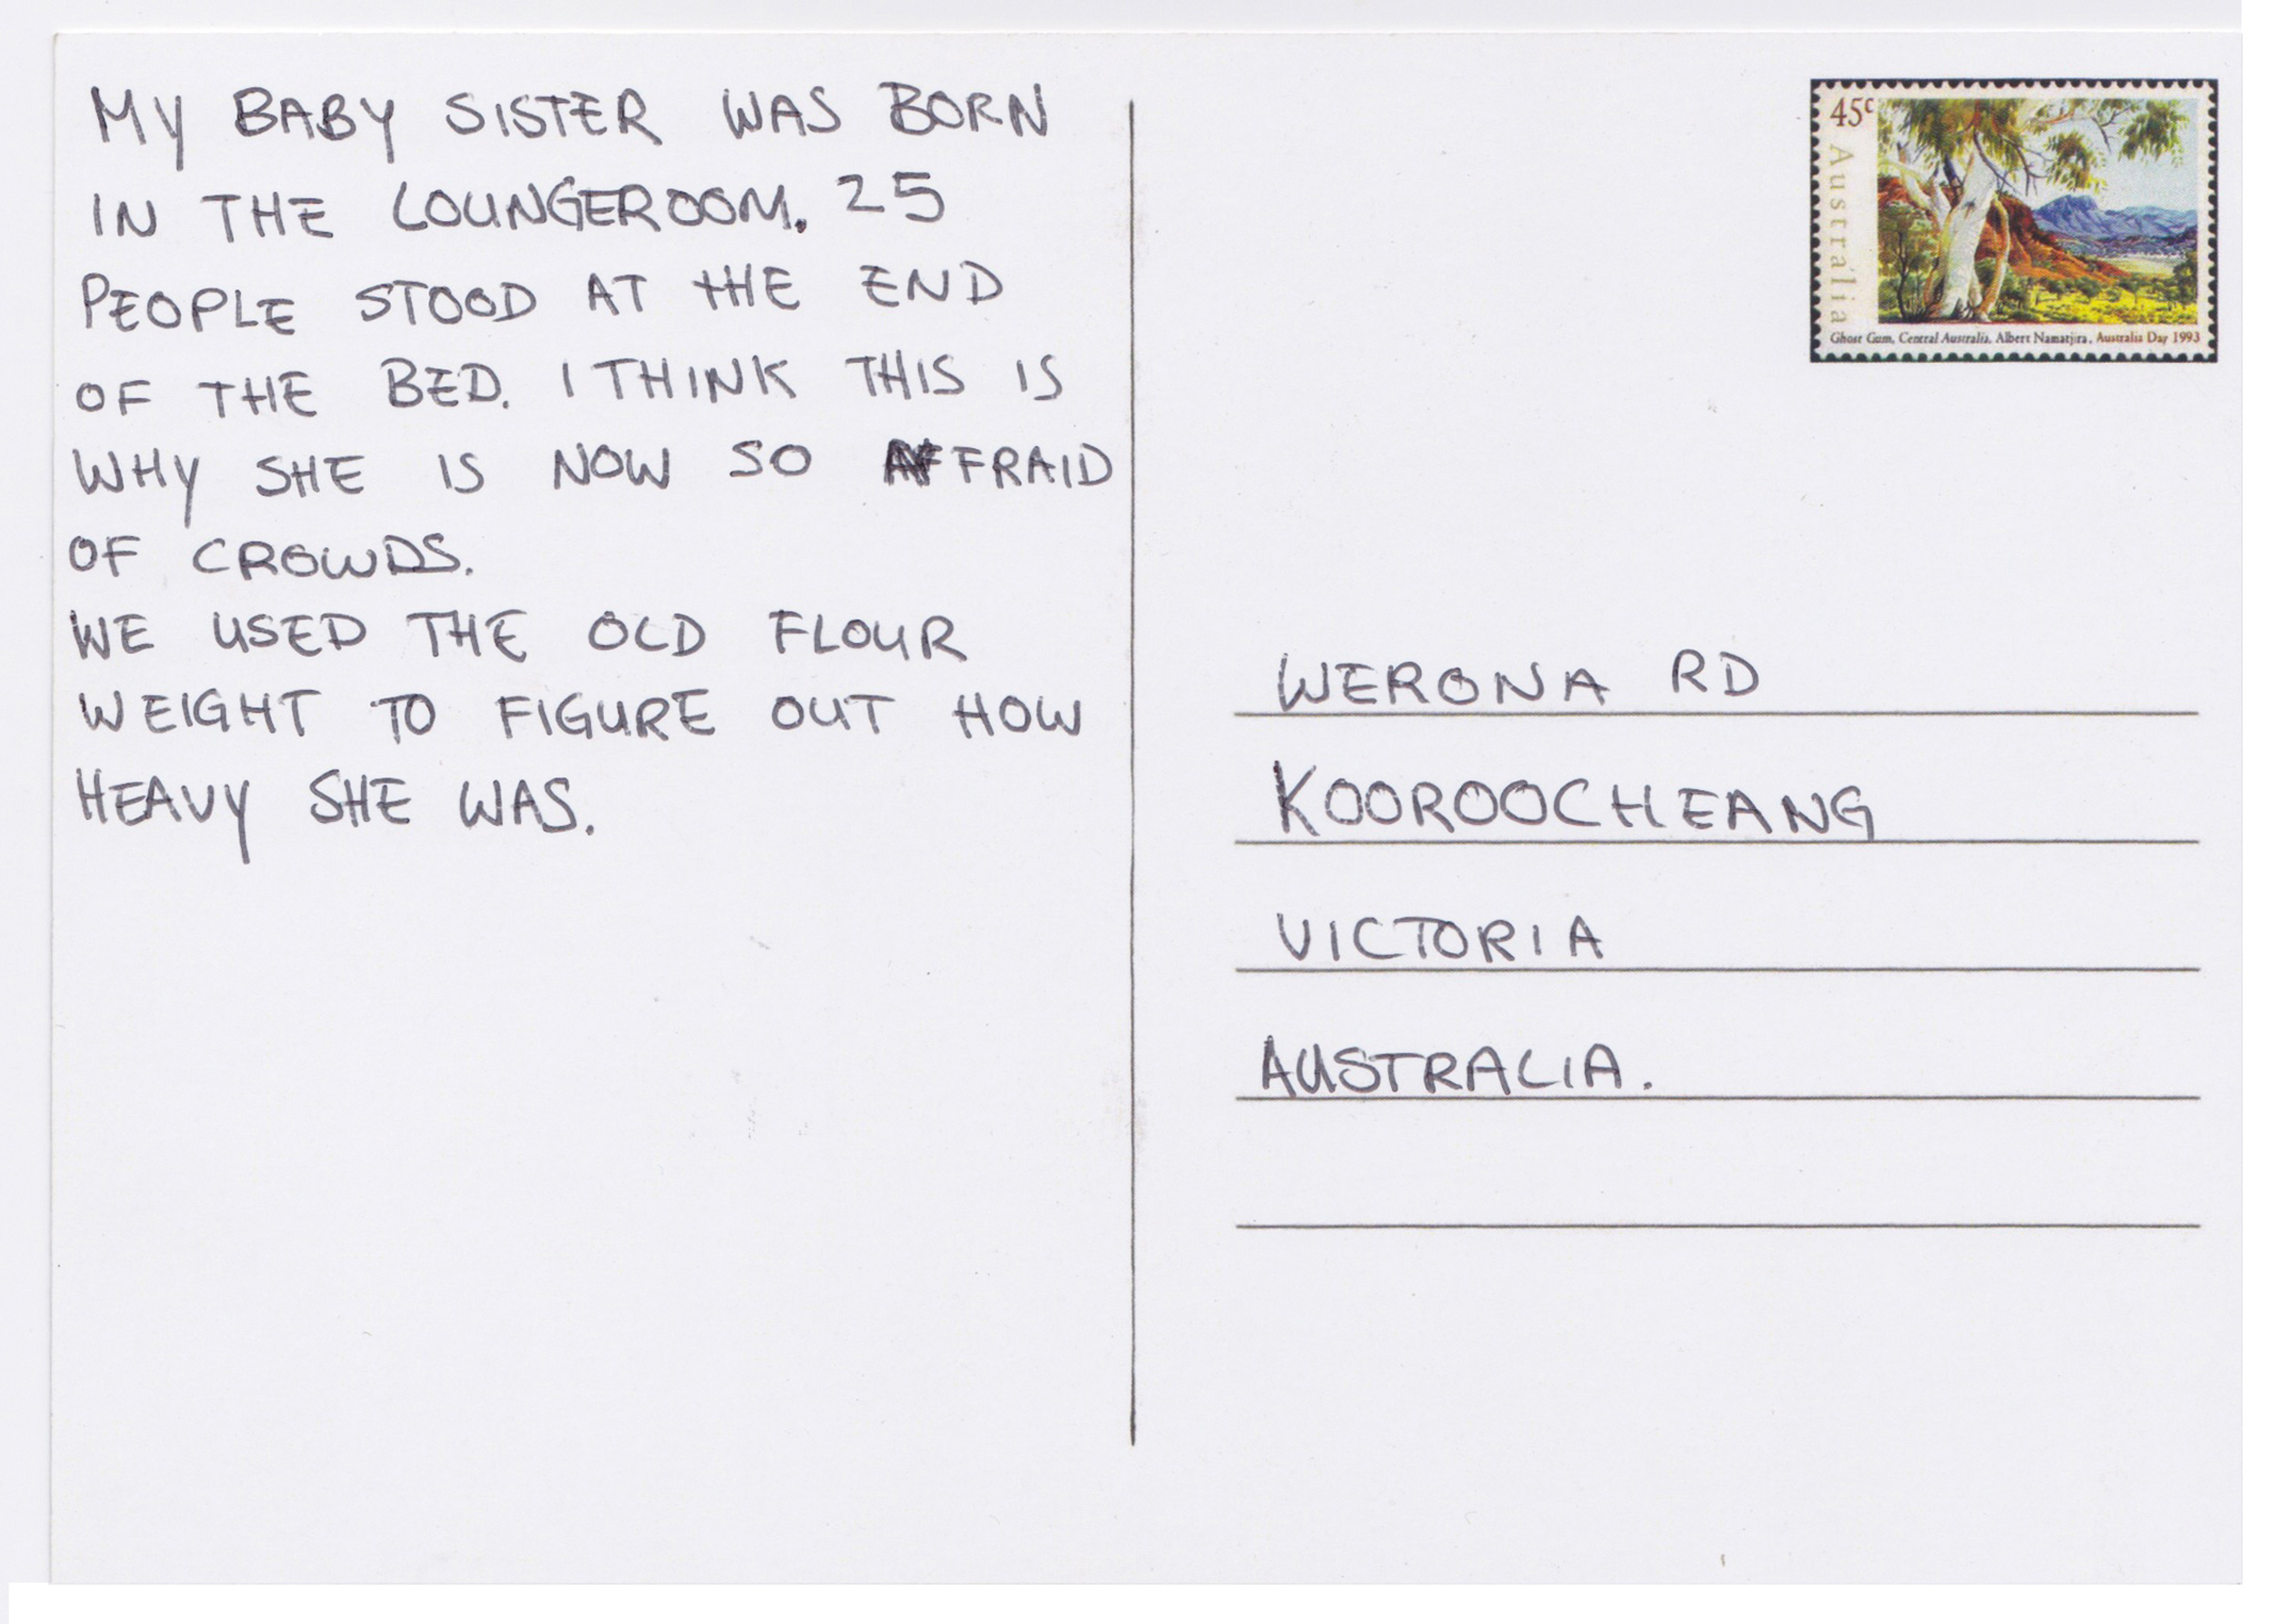 MY BABY SISTER WAS BORN
IN THE LOUNGEROOM. 25
PEOPLE STOOD AT THE END
OF THE BED. I THINK THIS IS
WHY SHE IS NOW SO AFFRAID
OF CROWDS.
WE USED THE OLD FLOUR
WEIGHT TO FIGURE OUT HOW
HEAVY SHE WAS.
45c
Australia
Ghost Gum, Central Australia, Albert Namatjira, Australia Day 1993
WERONA RD
KOOROOCHEANG
VICTORIA
AUSTRALIA.